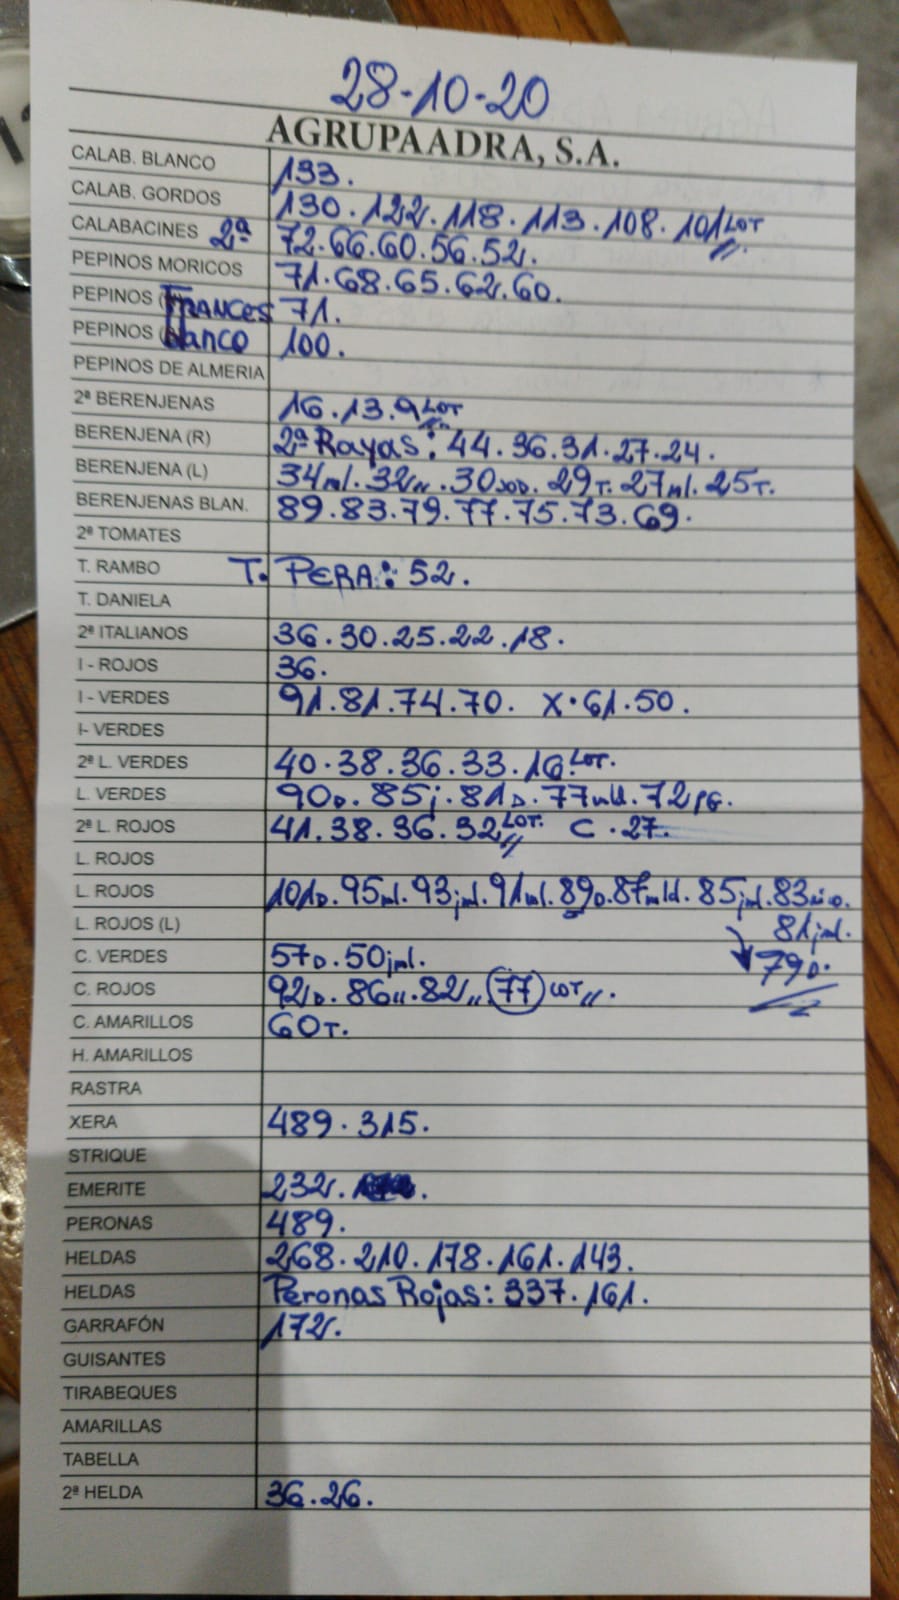 28-10-20
AGRUPAADRA, S.A.
CALAB. BLANCO 133.
CALAB. GORDOS 130. 122. 118. 113. 108. 101 LOT
CALABACINES 2ª 72. 66. 60. 56. 52.
PEPINOS MORICOS 71. 68. 65. 62. 60.
PEPINOS FRANCES 71.
PEPINOS blanco 100.
PEPINOS DE ALMERIA
2ª BERENJENAS 16. 13. 9 LOT
BERENJENA (R) 2ª Rayas: 44. 36. 31. 27. 24.
BERENJENA (L) 34ml. 32,,. 30 . 29T. 27ml. 25T.
BERENJENAS BLAN. 89. 83. 79. 77. 75. 73. 69.
2ª TOMATES
T. RAMBO T. PERA: 52.
T. DANIELA
2ª ITALIANOS 36. 30. 25. 22. 18.
I - ROJOS 36.
I - VERDES 91. 81. 74. 70. X. 61. 50.
I- VERDES
2ª L. VERDES 40. 38. 36. 33. 16 LOT.
L. VERDES 90D. 85j. 81D. 77mld. 72PG.
2ª L. ROJOS 41. 38. 36. 32 LOT. C. 27.
L. ROJOS
L. ROJOS 101D. 95ml. 93jml. 91ml. 89D. 87mld. 85jml. 83
L. ROJOS (L) 81jml.
C. VERDES 57D. 50jml. 79D.
C. ROJOS 92D. 86,,. 82,,. 77 LOT,,.
C. AMARILLOS 60T.
H. AMARILLOS
RASTRA
XERA 489. 315.
STRIQUE
EMERITE 232.
PERONAS 489.
HELDAS 268. 210. 178. 161. 143.
HELDAS Peronas Rojas: 337. 161.
GARRAFÓN 172.
GUISANTES
TIRABEQUES
AMARILLAS
TABELLA
2ª HELDA 36. 26.